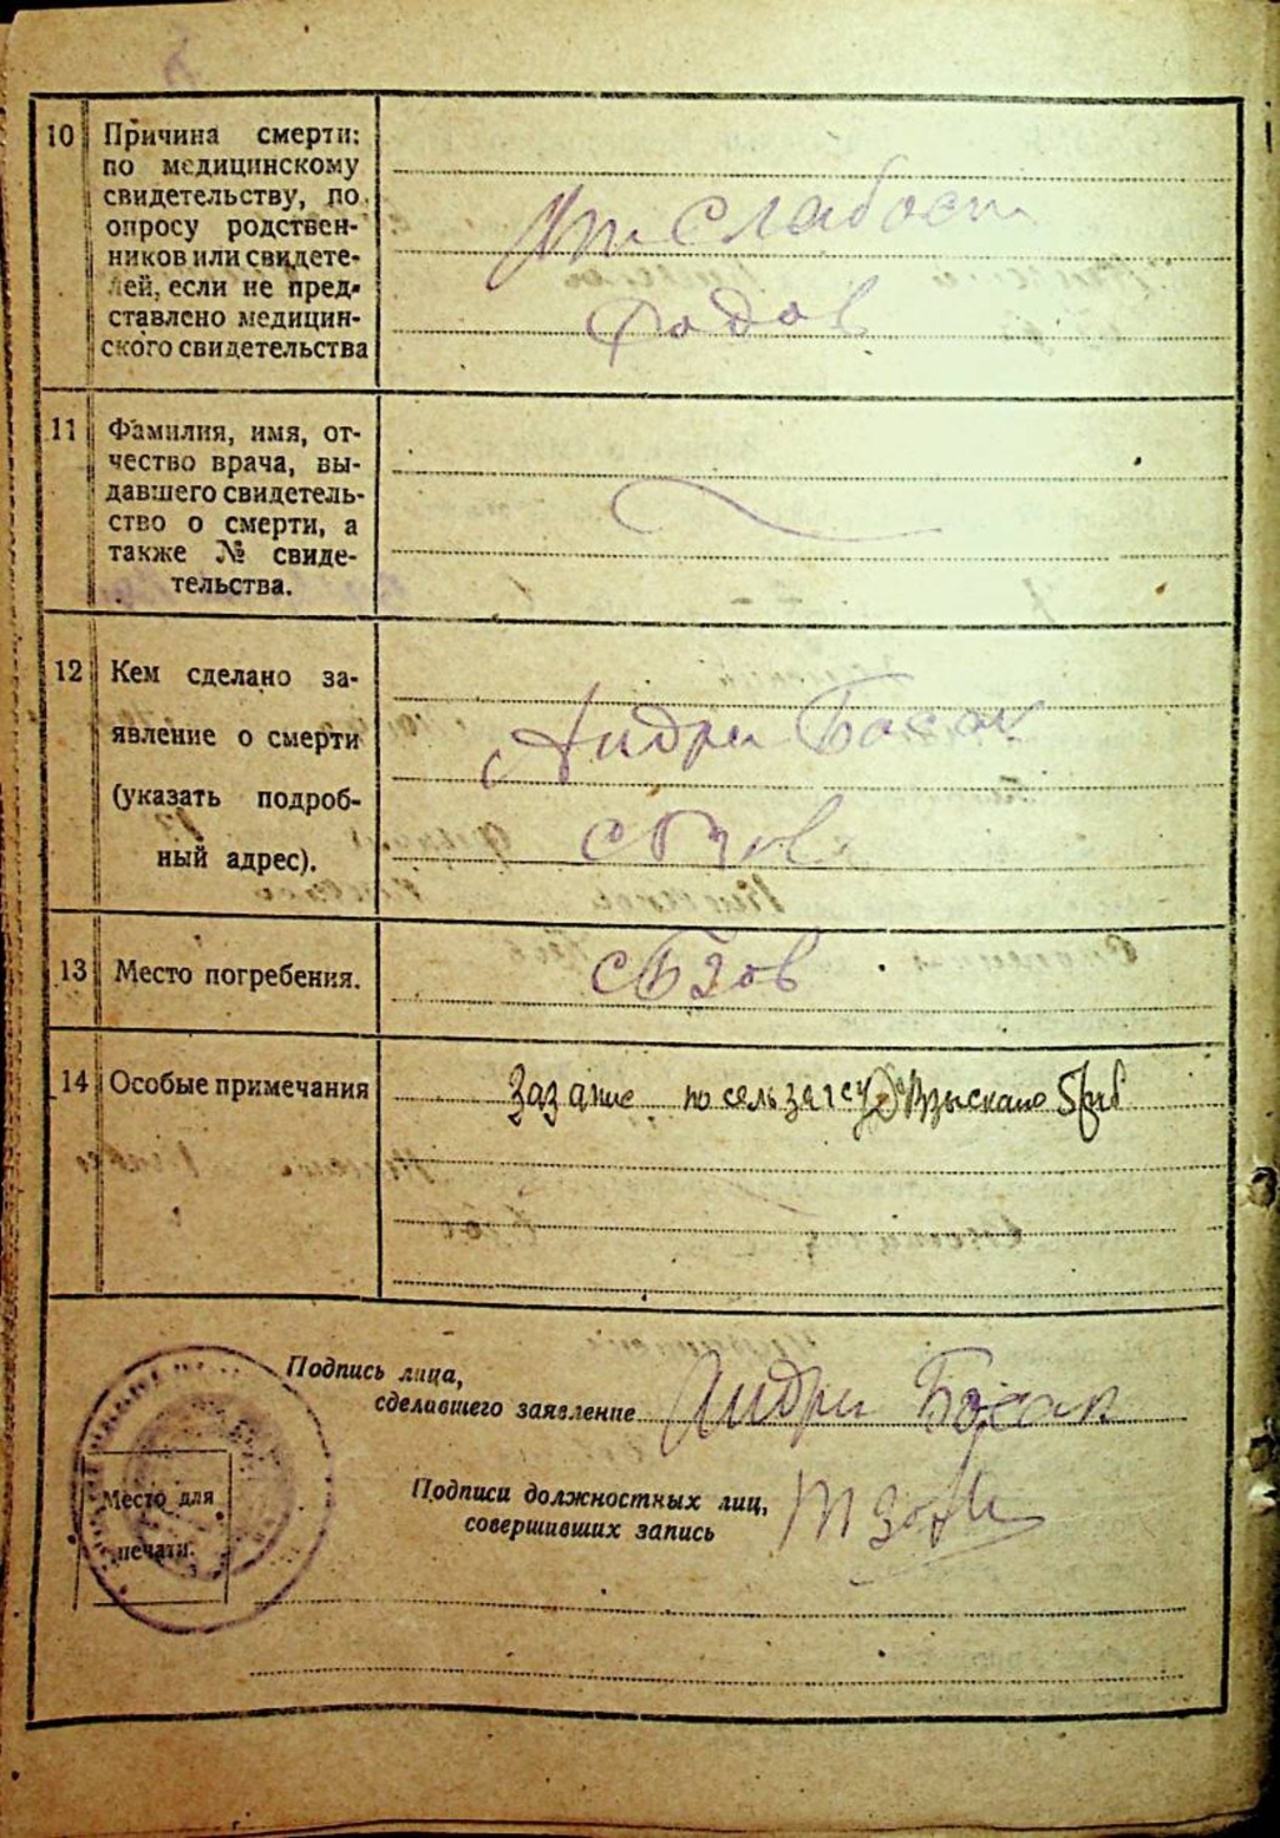 10 Причина смерти:
по медицинскому
свидетельству, по
опросу родствен-
ников или свидете-
лей, если не пред-
ставлено медицин-
ского свидетельства
слабост
родов
11 Фамилия, имя, от-
чество врача, вы-
давшего свидетель-
ство о смерти, а
также № свиде-
тельства.
12 Кем сделано за-
явление о смерти
(указать подроб-
ный адрес).
Андри Босак
13 Место погребения.
сБзов
14 Особые примечания
по сельзагсу Взыскано 5 руб
Подпись лица,
сделавшего заявление Андри Босак
Подписи должностных лиц,
совершивших запись
Место для
печати.